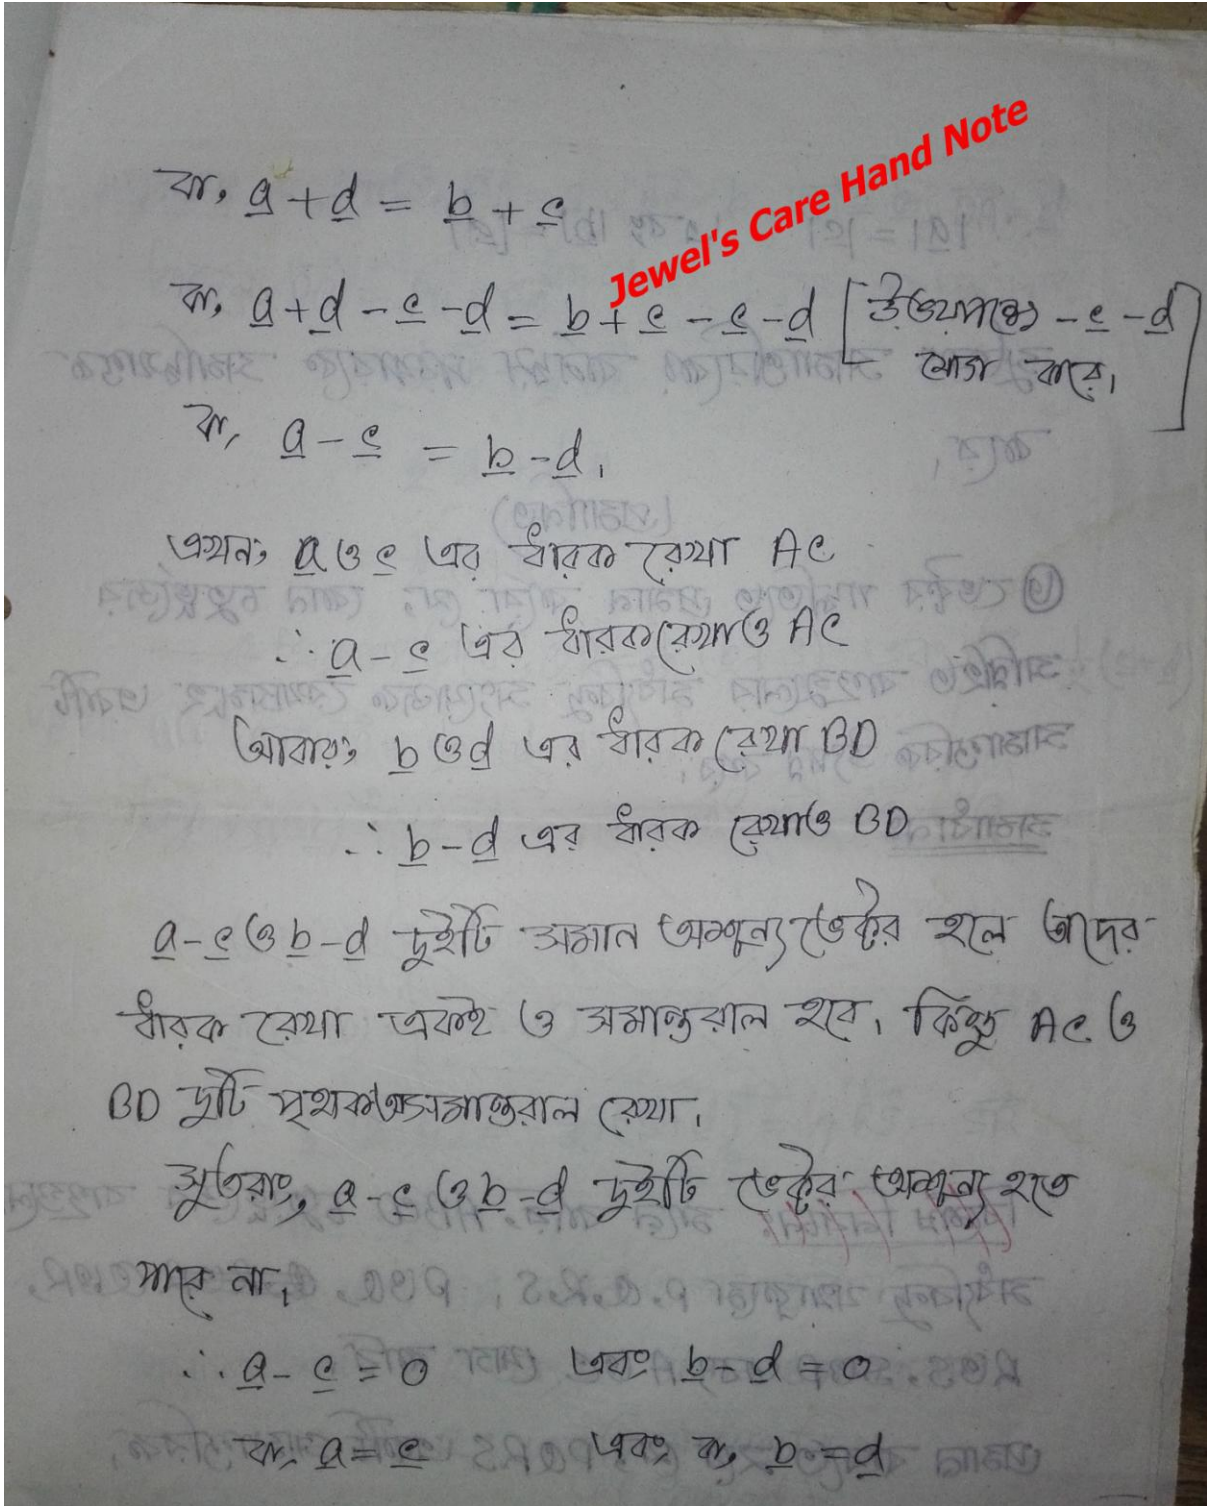 Jewel's Care Hand Note
বা, a + d = b + c
বা, a + d - c - d = b + c - c - d [উভয়পক্ষে - c - d
যোগ করে।]
বা, a - c = b - d।
এখন, a ও c এর ধারক রেখা AC
∴ a - c এর ধারক রেখাও AC
আবার, b ও d এর ধারক রেখা BD
∴ b - d এর ধারক রেখাও BD
a - c ও b - d দুইটি সমান অশূন্য ভেক্টর হলে তাদের
ধারক রেখা একই ও সমান্তরাল হবে। কিন্তু AC ও
BD দুটি পৃথক অসমান্তরাল রেখা।
সুতরাং, a - c ও b - d দুইটি ভেক্টর অশূন্য হতে
পারে না।
∴ a - c = 0 এবং b - d = 0
বা, a = c এবং বা, b = d